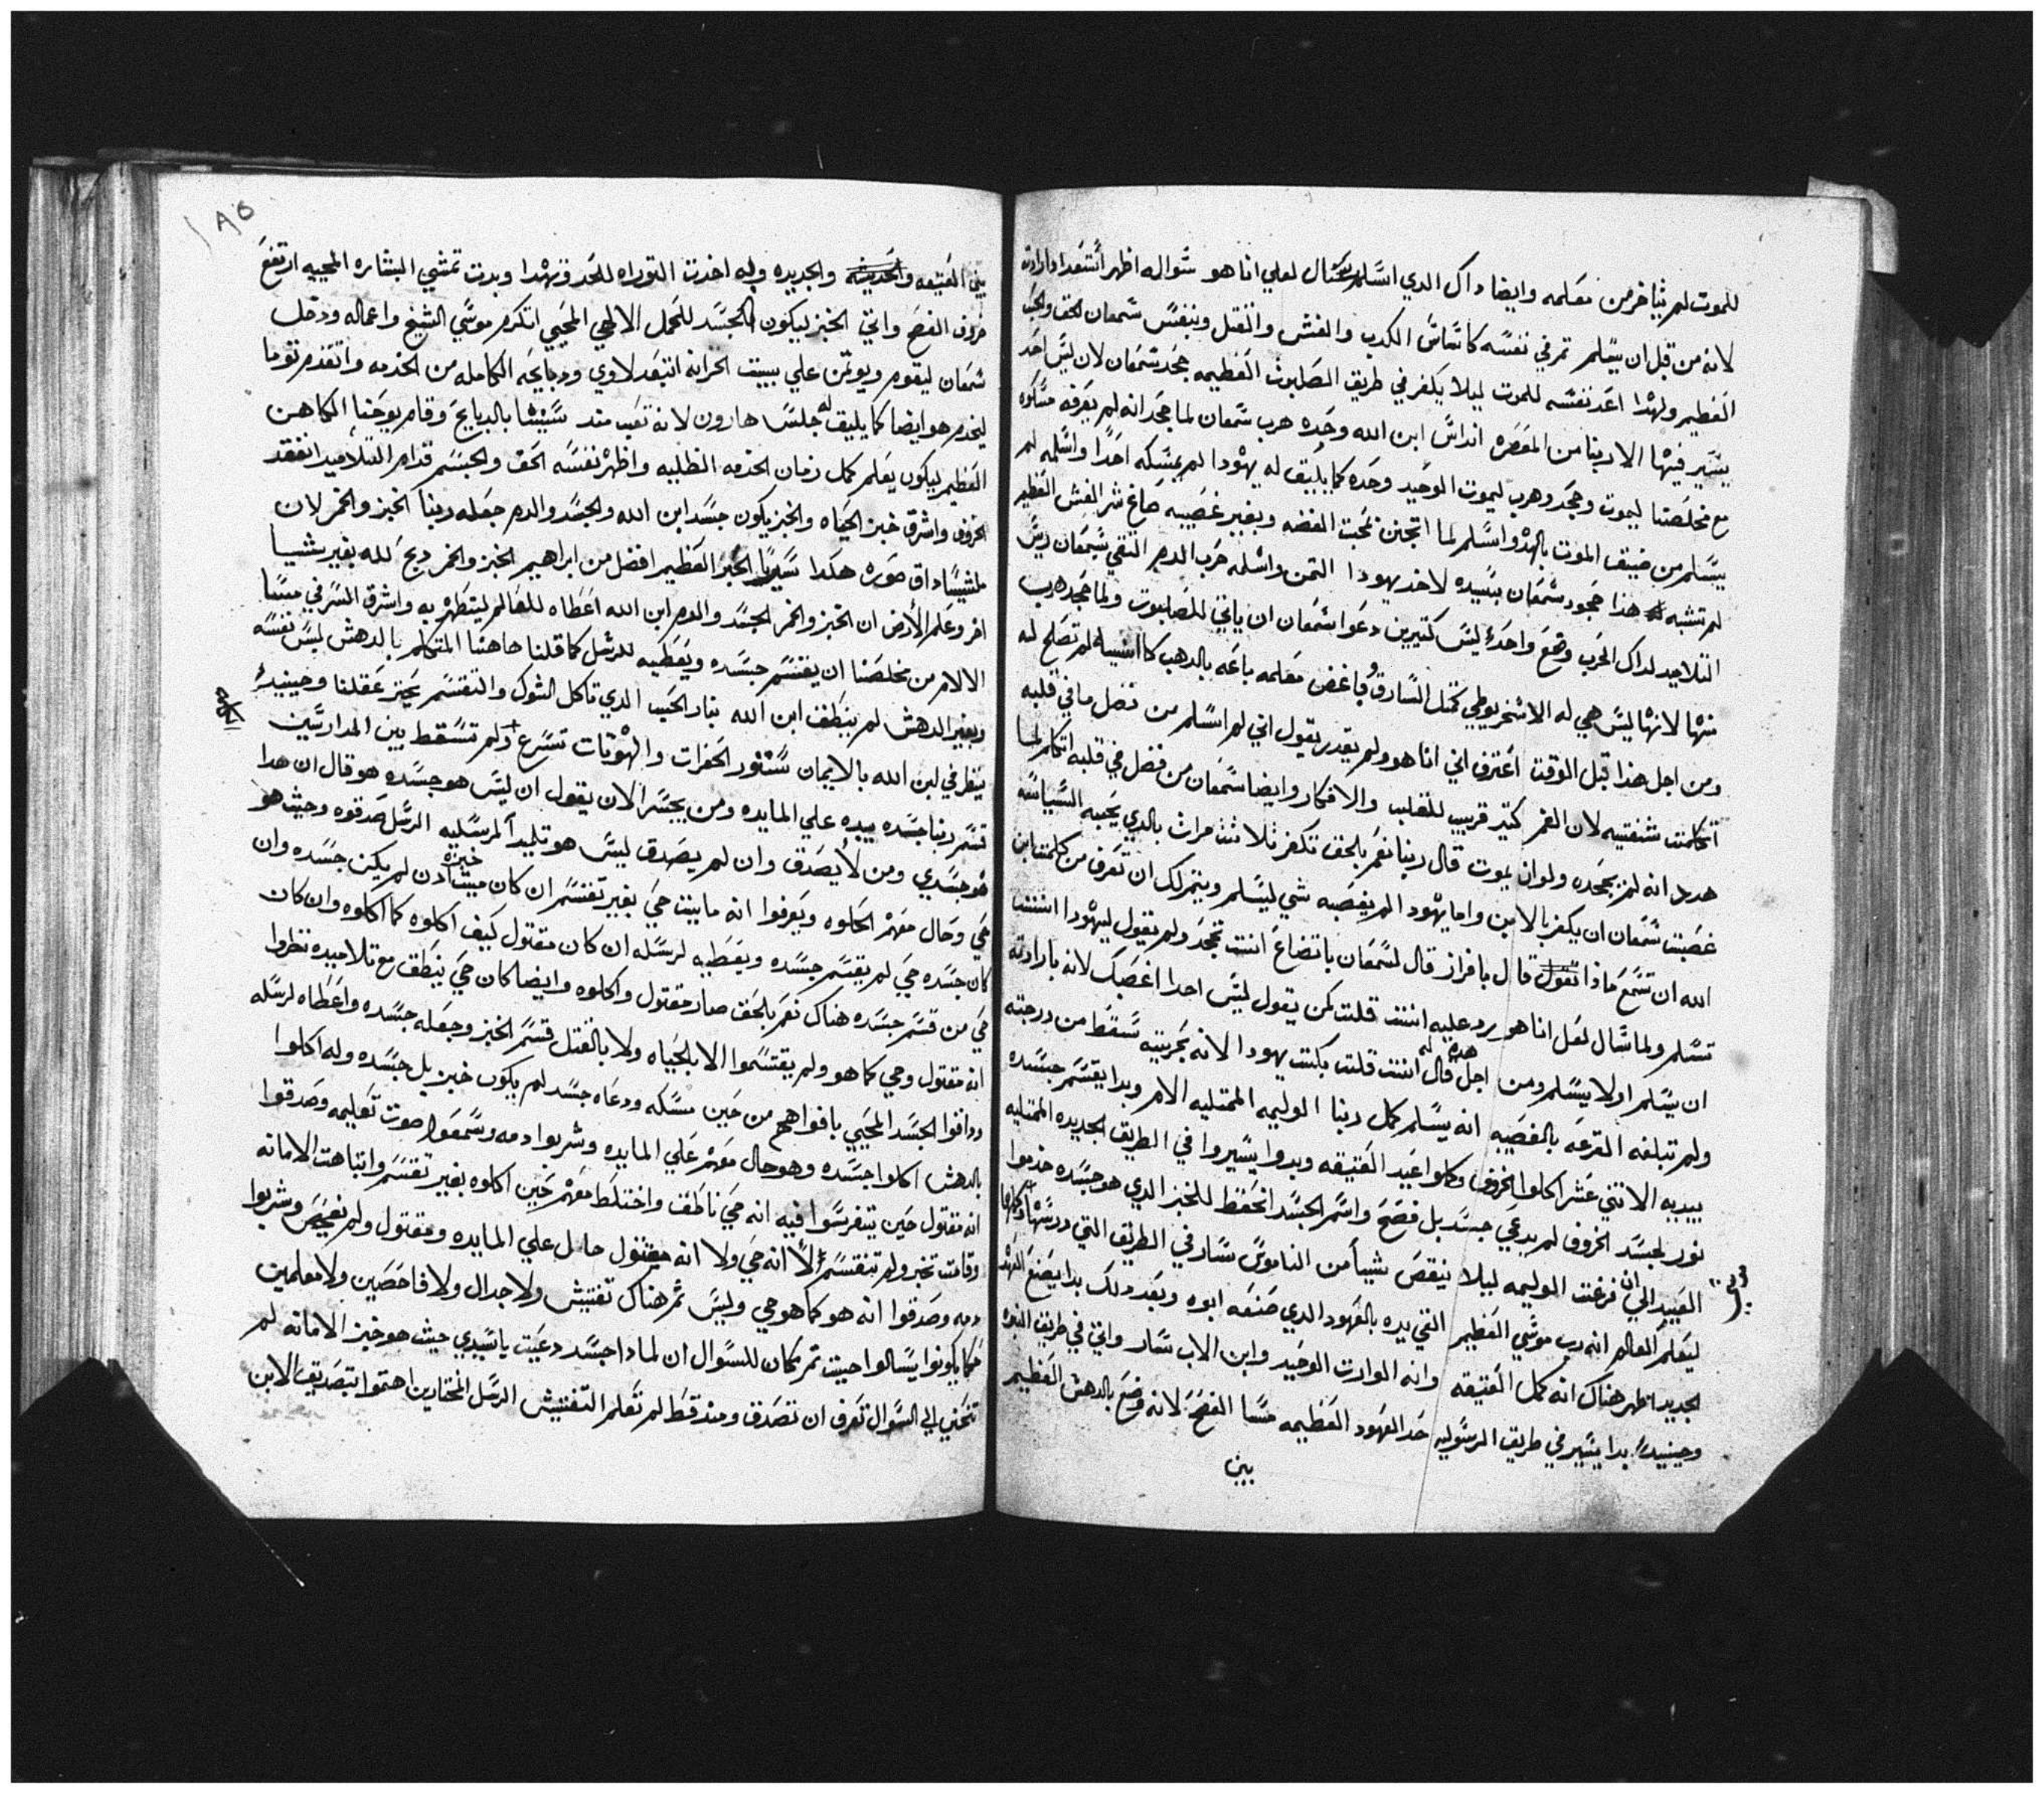 للموت لم يتاخر من معلمه وايضا داك الدي اسلم سال لعلي انا هو سواله اظهر استعداد ارادته
لانه من قبل ان يسلم تمر في نفسه كاساس الكدب والغش والقتل وبنفس سمعان الحق والحب
العظيم ولهدا اعد نفسه للموت ليلا يكفر في طريق الصلبوت العظيمه جحد سمعان لان ليس احد
يسير فيها الا ربنا من المعصره انداس ابن الله وحده هرب سمعان لما جحد انه لم يعرفه
مع مخلصنا ليموت وجحد وهرب ليموت الوحيد وحده كما يليق له يهودا لم يمسكه احدا واسلمه لم
يسلم من ضيق الموت بالهدو اسلم لما اتجنن لمحبت الفضه وبغير غصيبه صاغ شر الغش العظيم
لم تشبه هدا جحود سمعان بسيده لاخد يهودا التمن واسلمه حرب الدم التقي سيمعان ريس
التلاميد لداك الحرب وقع واحده ليس كتيرين دعوا سمعان ان ياتي للصلبوت ولما جحد هرب
منها لانها ليس هي له الاسخريوطي كمتل السارق وباغض معلمه باعه بالدهب كانسيه لم تصلح له
ومن اجل هدا قبل الوقت اعترف اني انا هو ولم يقدر يقول اني لم اسلم من فضل ما في قلبه
اتكلمت شفتيه لان الفم كتير قريب للقلب والافكار وايضا سمعان من فضل في قلبه اتكلم لما
هدد انه لم يجحده ولو ان يموت قال ربنا نعم بالحق تكفر تلاتت مرات بالدي يحبه
غصبت سمعان ان يكفر بالابن واما يهودا لم يغصبه شي ليسلم ويتمر لك ان تعرف من كلمت ابن
الله ان تسمع مادا تقول قال بافراز قال لسمعان باتضاع انت تجحد ولم يقول ليهودا انت
تسلم ولما سال لعل انا هو رد عليه انت قلت لمن يقول ليس احدا اغصبك لانه بارادته
ان يسلم او لا يسلم ومن اجل هده قال له انت قلت بكت يهودا لانه بحريته سقط من درجته
ولم تبلغه القرعه بالغصيبه انه يسلم كمل ربنا الوليمه الممتليه الام وبدا يقسم جسده
بيديه الاتني عشر اكلوا الخروف وكملوا عيد العتيقه وبدوا يسيروا في الطريق الجديده الممتليه
نور لجسد الخروف لم يدعي جسد بل فصح واسم الجسد انحفظ للخبز الدي هو جسده خدموا
العبيد الي ان فرغت الوليمه ليلا ينقص شيا من الناموس سار في الطريق التي درسها وكملها
ليعلم العالم انه رب موسي العظيم التقي يده بالعهود الدي صنعه ابوه وبعد دلك بدا يصنع العهد
الجديد اظهر هناك انه كمل العتيقه وانه الوارت الوحيد وابن الاب سار واتي في طريق
وحينيد بدا يسير في طريق الرسوليه حد العهود العظيمه مسا الفصح لانه وضع بالدهش العظيم
بين
١٨٥
بين العتيقه والحديثه والجديده وله اخدت التوراه للحد وبهدا وبدت تمشي البشاره المحييه ارتفع
خروف الفصح واتي الخبز ليكون الجسد للحمل الالهي المحيي اتكرم موسي الشيخ واعماله ودخل
شمعان ليقوم ويوتمن علي بيت الخزانه اتبعد لاوي ودبايحه الكامله من الخدمه واتقدم توما
ليخدم هو ايضا كما يليق له جلس هارون لانه تعب مند سنينا بالدبايح وقام يوحنا الكاهن
العظيم ليكون يعلم كمل زمان الخدمه الظليه واظهر نفسه الحق والجسم قدام التلاميد انفقد
الخروف واشرق خبز الحياه والخبز يكون جسد ابن الله والجسد والدم جعله ربنا الخبز والخمر لان
ملشيساداق صوره هكدا سريا الحبر العظيم افضل من ابراهيم الخبز والخمر دبح لله بغير شيا
اخر وعلم الارض ان الخبز والخمر الجسد والدم ابن الله اعطاه للعالم ليتطهر به واشرق السر في مسا
الالام من مخلصنا ان يقسم جسده ويعطيه للرسل كما قلنا هاهنا المتكلم بالدهش ليس نفسه
وبغير الدهش لم ينطف ابن الله بنار الحب الدي تاكل الشوك والتقسم يحتر عقلنا وحينيد
ينظر في لبن الله بالايمان سنور الحفرات والهوتات تسرع ولم تسقط بين المدارسين
قسم ربنا جسده بيده علي المايده ومن يجسر الان يقول ان ليس هو جسده هو قال ان هدا
هو جسدي ومن لا يصدق وان لم يصدق ليس هو تلميد المرسليه الرسل صدقوه وحيت هو
حي وحال معهم اكلوه ويعرفوا انه مايت حي بغير تقسم ان كان ميت ادن خبزه لم يكن جسده وان
كان جسده حي لم يقسم جسده ويعطيه لرسله ان كان مقتول كيف اكلوه كما اكلوه وان كان
حي من قسم جسده هناك نعم بالحق صار مقتول واكلوه وايضا كان حي ينطق مع تلاميده نظروا
انه مقتول وحي كما هو ولم يقتسموا الا بالحياه ولا بالقتل قسم الخبز وجعله جسده واعطاه لرسله
وداقوا الجسد المحيي بافواههم من حين مسكه ودعاه جسد لم يكون خبز بل جسده وله اكلوا
بالدهش اكلوا جسده وهو حال معهم علي المايده وشربوا دمه وسمعوا صوت تعليمه وصدقوا
انه مقتول حين يتفرسوا فيه انه حي ناطق واختلط معهم حين اكلوه بغير تقسم واتباهت الامانه
وقامت تخبر ولم تنقسم الا انه حي ولا انه مقتول حال علي المايده ومقتول ولم تفحص وشربوا
دمه وصدقوا انه هو كما هو حي وليس تم هناك تفتيش ولا جدال ولا فاحصين ولا معلمين
حكما يكونوا يسالوا حيت تم مكان للسوال ان لمادا جسد دعيت ياسيدي حيث هو خبز الامانه لم
تحتي الي السوال تعرف ان تصدق ومند قط لم تعلم التفتيش الرسل المختارين احتموا بتصديق الابن